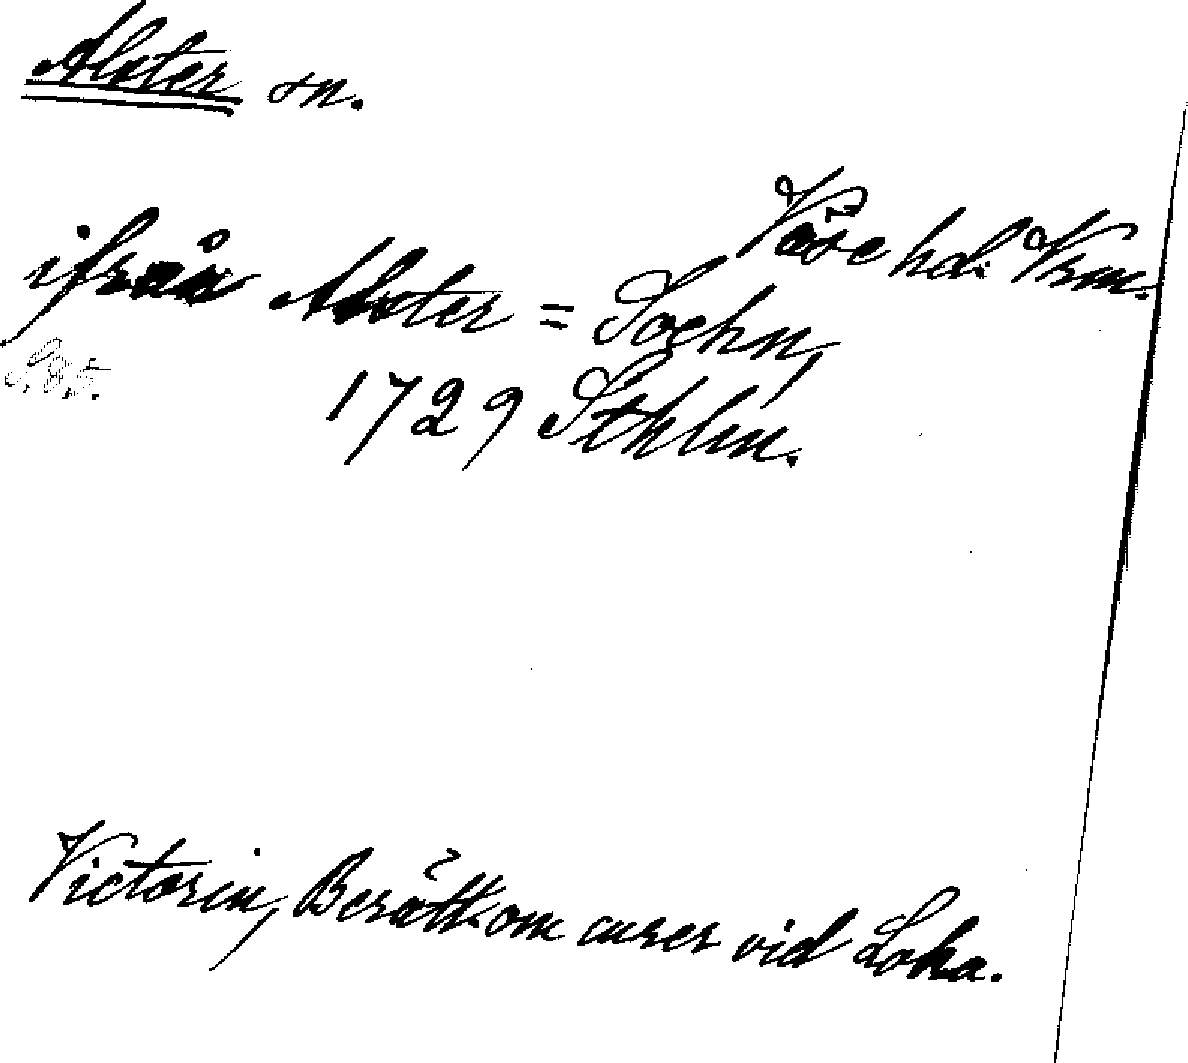 Alster sn.
Väse hd. Vrm.
ifrån Alster = Sochn,
1729 Sthlm.
Victorin, Berätt. om curer vid Loka.